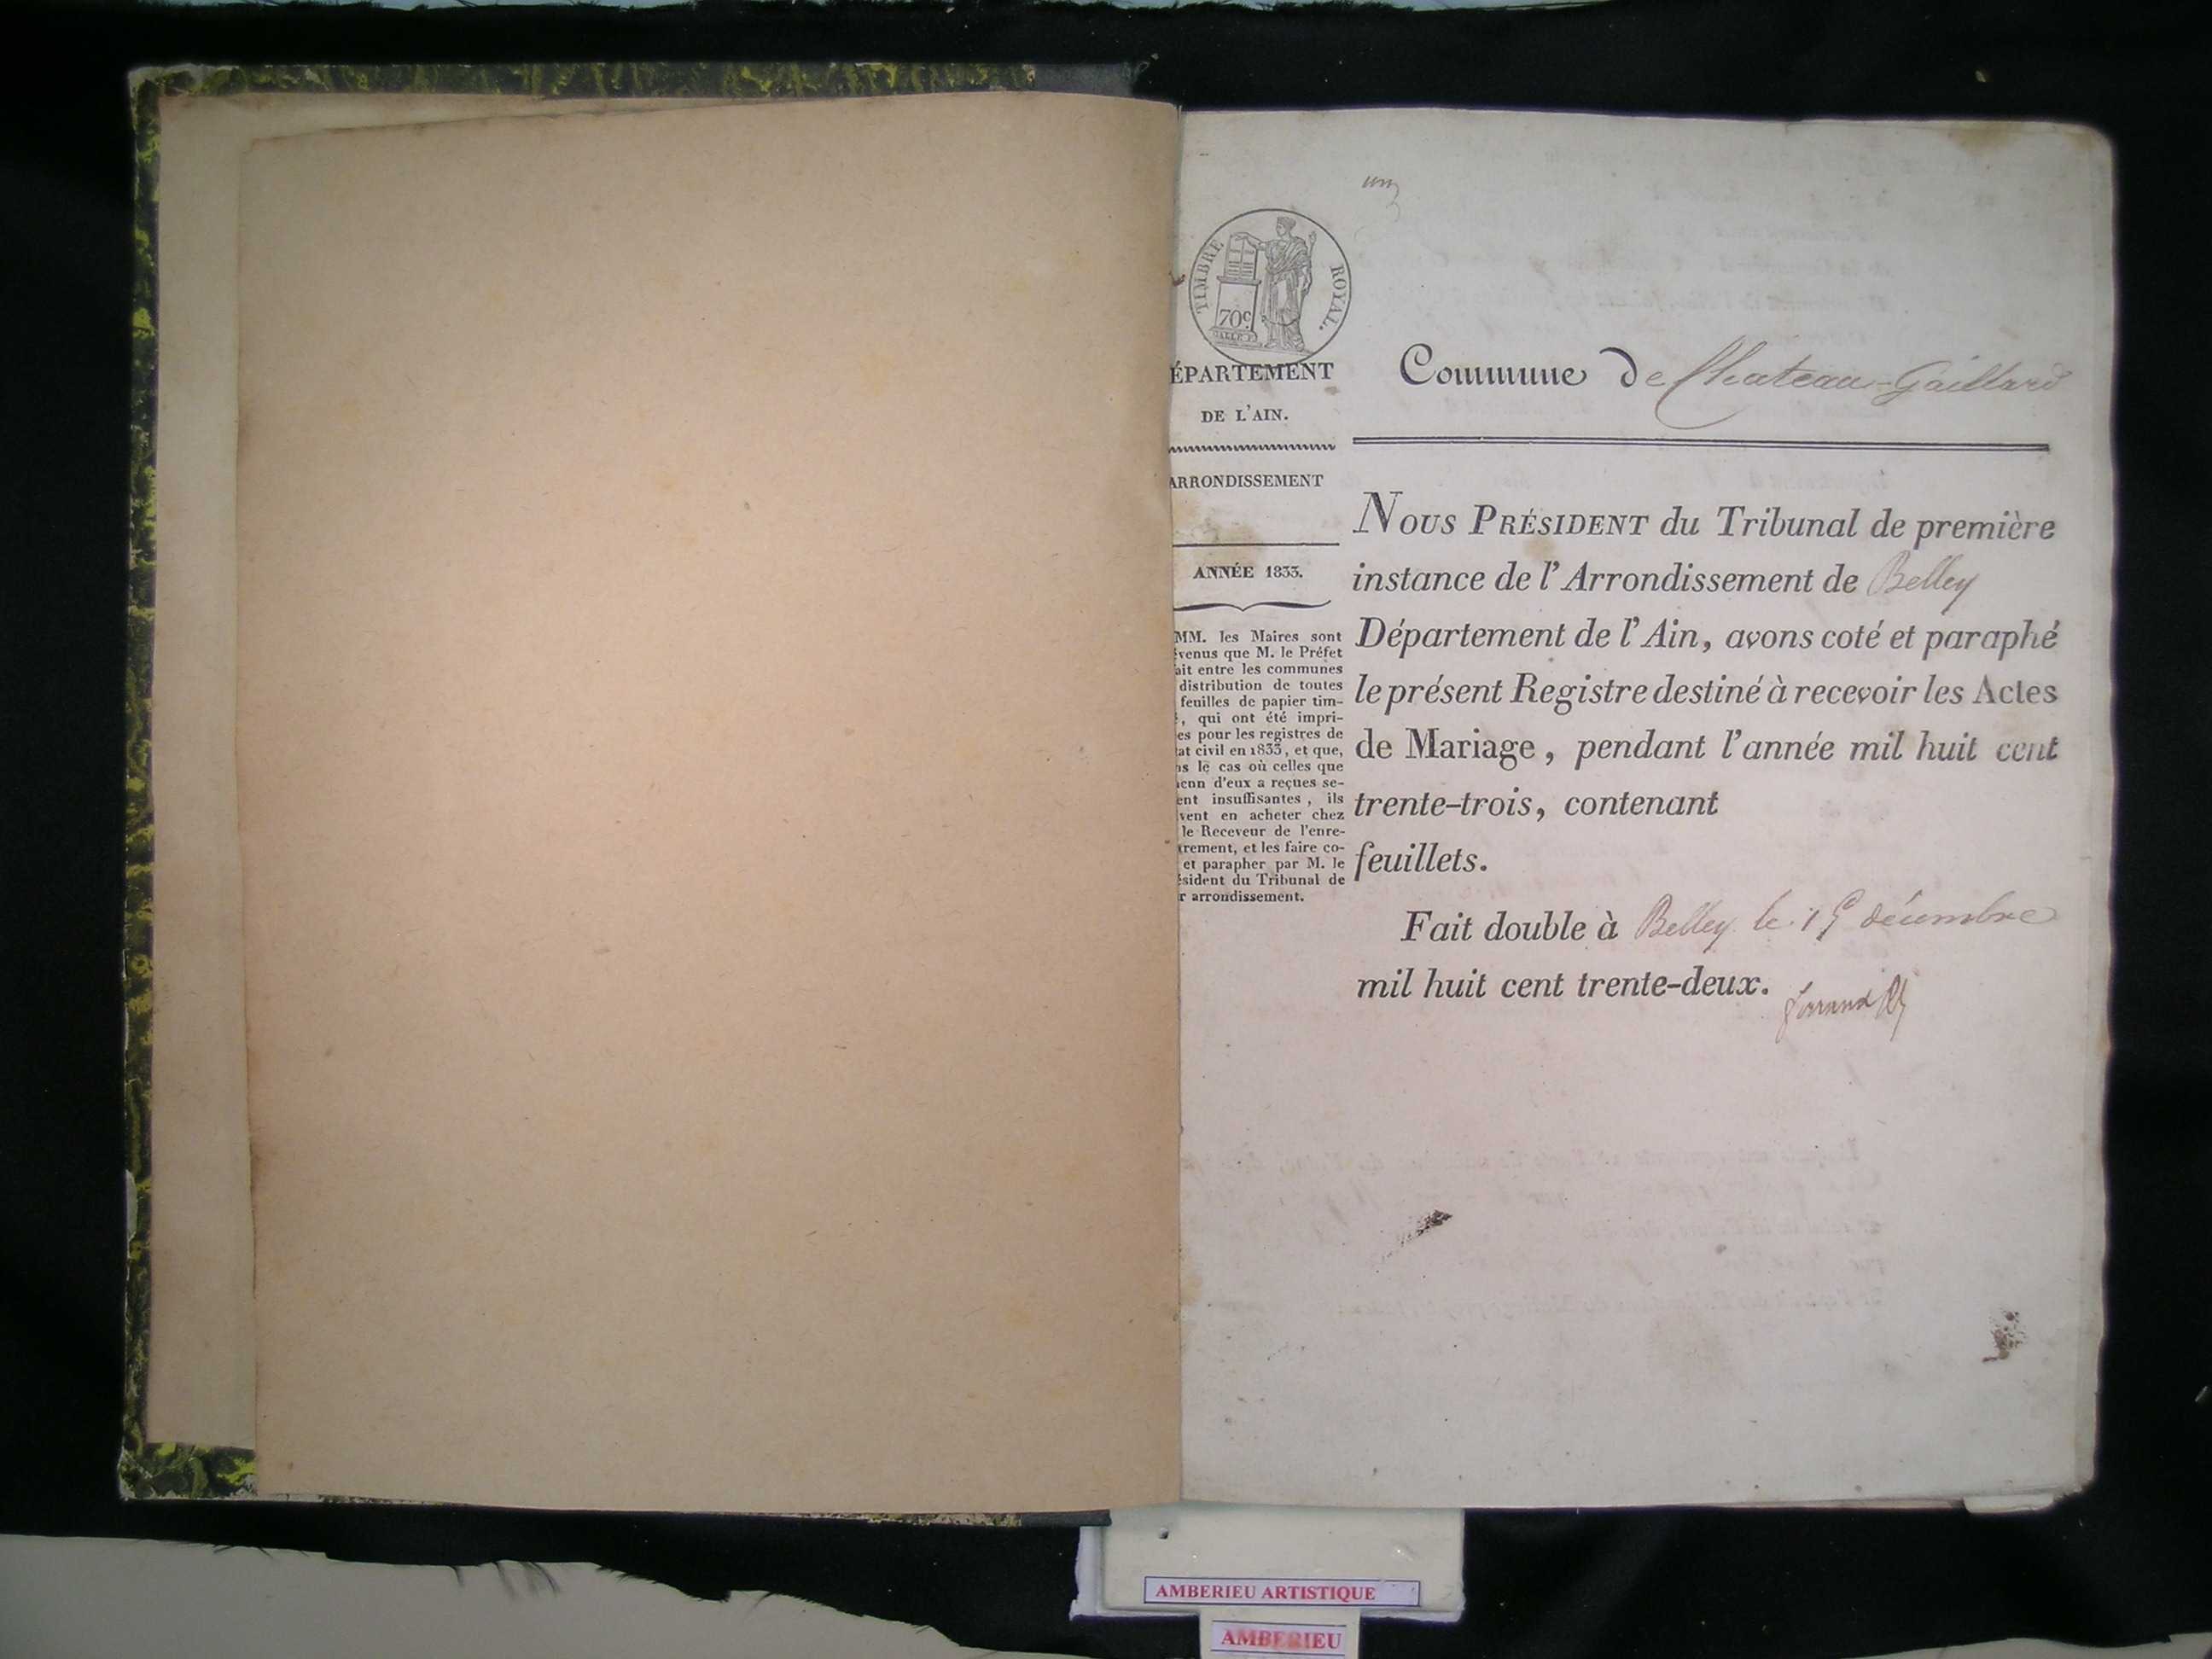 un
TIMBRE ROYAL.
70c
ÉPARTEMENT
DE L'AIN.
ARRONDISSEMENT
ANNÉE 1833.
MM. les Maires sont
venus que M. le Préfet
ait entre les communes
distribution de toutes
feuilles de papier tim-
, qui ont été impri-
es pour les registres de
at civil en 1833, et que,
ns le cas où celles que
acun d'eux a reçues se-
ent insuffisantes, ils
vent en acheter chez
le Receveur de l'enre-
trement, et les faire co-
et parapher par M. le
ésident du Tribunal de
r arrondissement.
Commune de Chateau-Gaillard
NOUS PRÉSIDENT du Tribunal de première
instance de l'Arrondissement de Belley
Département de l'Ain, avons coté et paraphé
le présent Registre destiné à recevoir les Actes
de Mariage, pendant l'année mil huit cent
trente-trois, contenant
feuillets.
Fait double à Belley le décembre
mil huit cent trente-deux.
AMBERIEU ARTISTIQUE
AMBERIEU